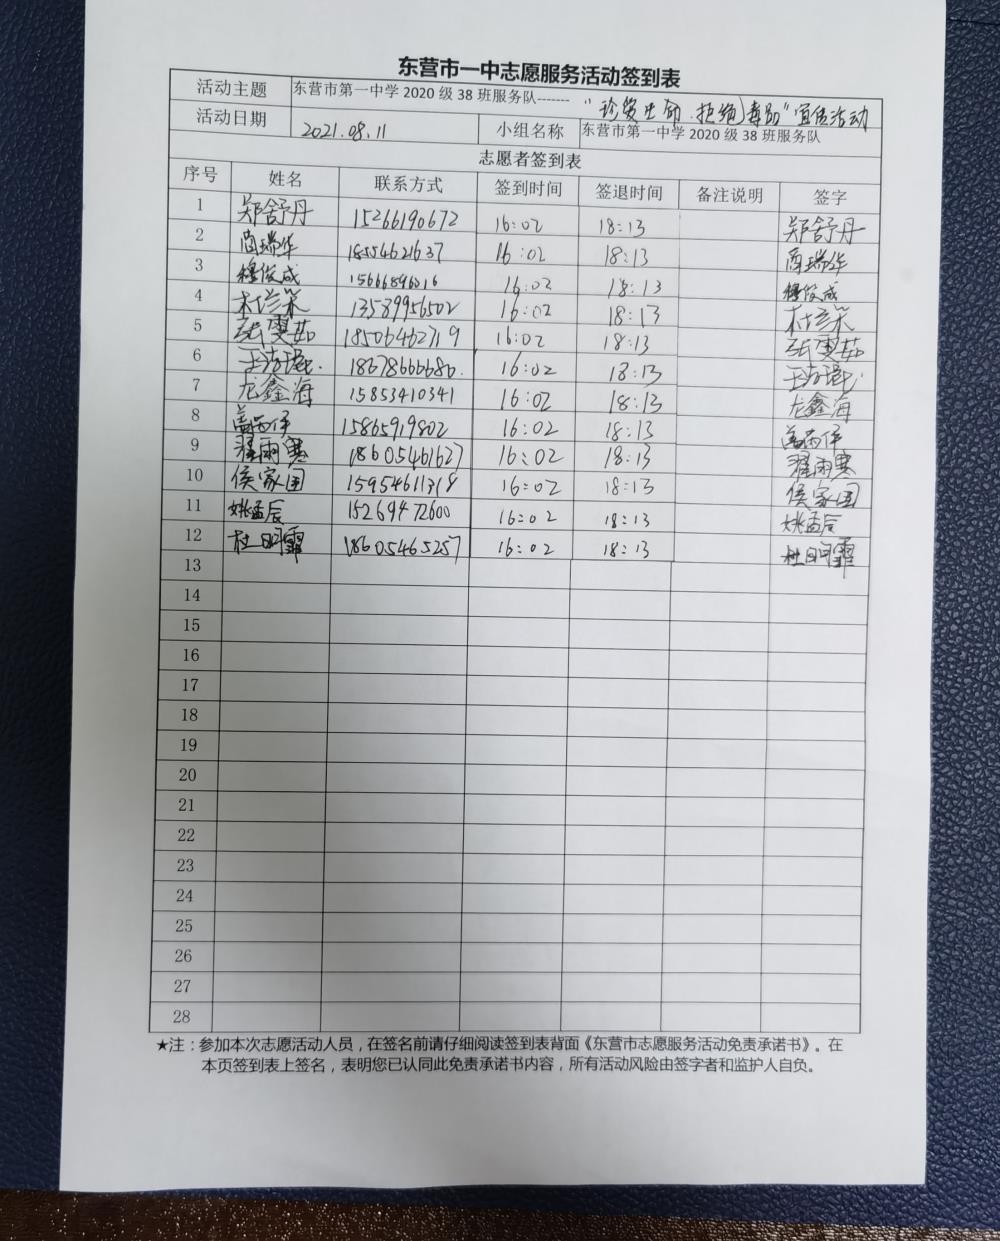 东营市一中志愿服务活动签到表
活动主题 东营市第一中学 2020 级 38 班服务队------- "珍爱生命.拒绝毒品"宣传活动
活动日期 2021.08.11 小组名称 东营市第一中学 2020 级 38 班服务队
志愿者签到表
序号 姓名 联系方式 签到时间 签退时间 备注说明 签字
1 郑舒丹 15266190672 16:02 18:13 郑舒丹
2 商瑞华 18554621637 16:02 18:13 商瑞华
3 穆俊成 15666896016 16:02 18:13 穆俊成
4 13589956502 16:02 18:13
5 张雯茹 18506462719 16:02 18:13 张雯茹
6 18678666686 16:02 18:13
7 龙鑫海 15853410341 16:02 18:13 龙鑫海
8 15865919802 16:02 18:13
9 翟雨寒 18605461627 16:02 18:13 翟雨寒
10 侯家国 15954611318 16:02 18:13 侯家国
11 姚孟辰 15269472600 16:02 18:13 姚孟辰
12 杜明霏 18605465257 16:02 18:13 杜明霏
13
14
15
16
17
18
19
20
21
22
23
24
25
26
27
28
★注：参加本次志愿活动人员，在签名前请仔细阅读签到表背面《东营市志愿服务活动免责承诺书》。在
本页签到表上签名，表明您已认同此免责承诺书内容，所有活动风险由签字者和监护人自负。